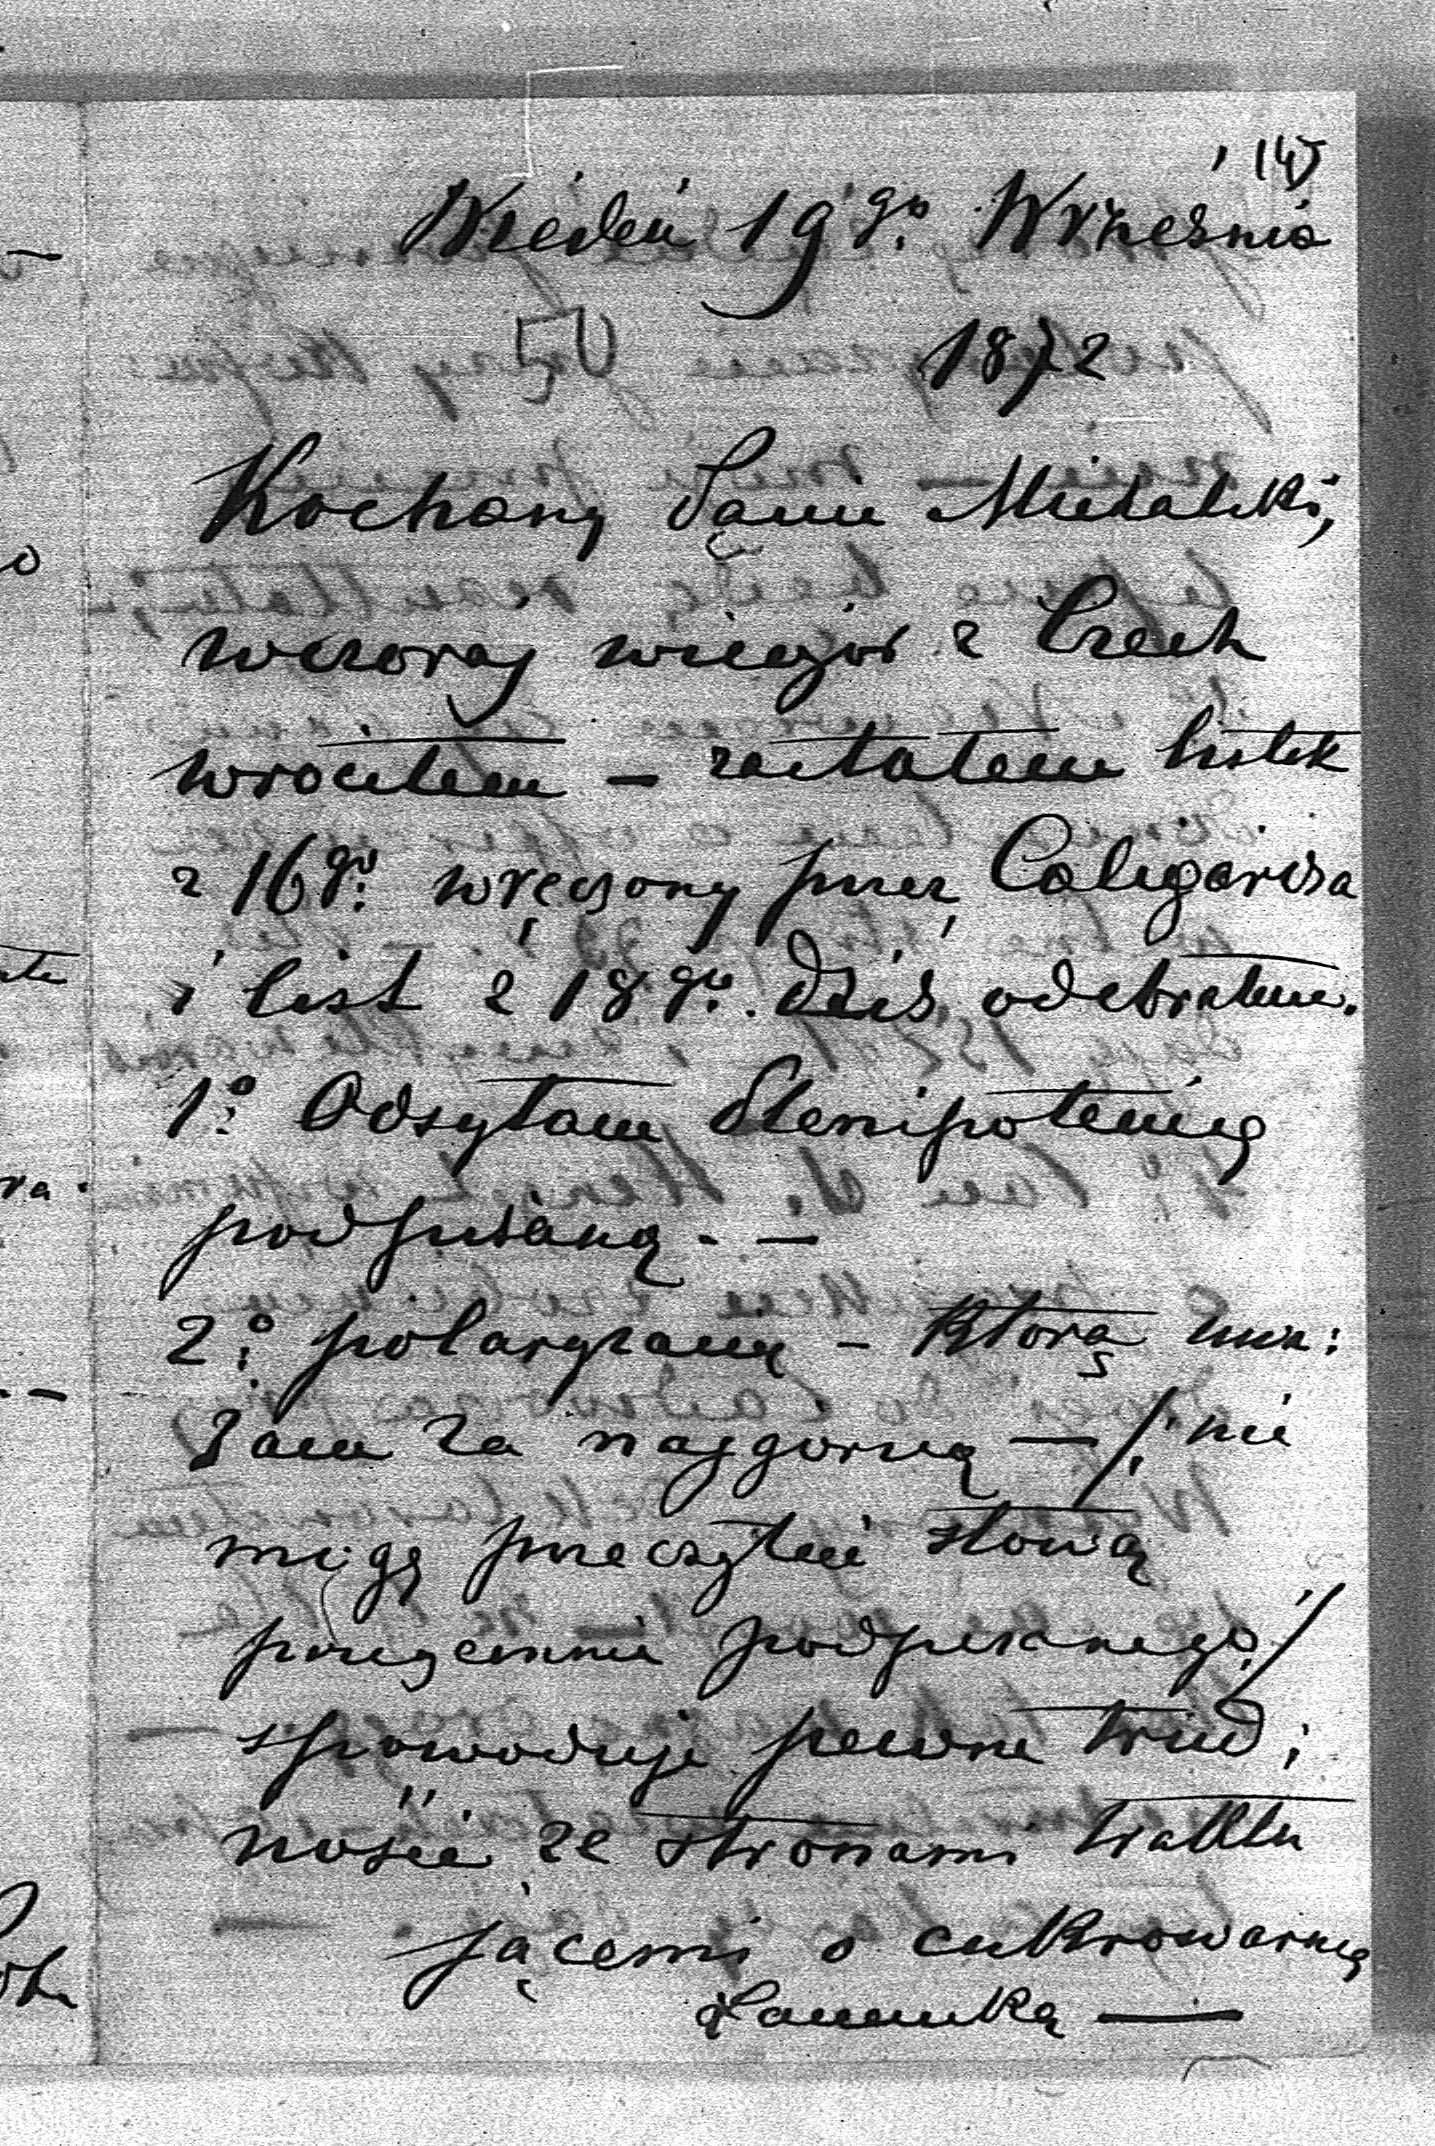 (14)
Wiedeń 19go. Września
1872
Kochany Panie Michalski,
wczoraj wieczór z Czech
wrociłem – zastałem listek
z 16go. wręczony przez Caligarisa
i list z 18go. dziś odebrałem.
1o. Odsyłam Plenipotencię
podpisaną. –
2o. polaryzacią – którą uwa:
żam za najgorszą – /: nie
mogę przeczytać słowa
przyczennie podpisanego :/
spowoduje pewne trud:
ności ze stronami traktu
jącemi o cukrowarnią
Łanucką —